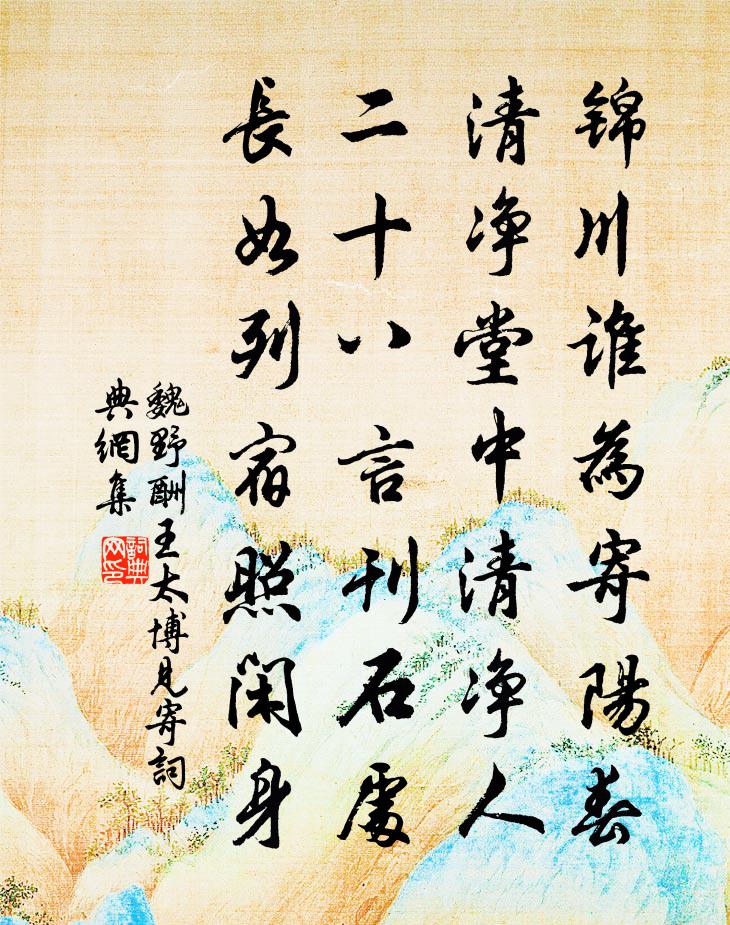 錦川誰為寄陽春
清净堂中清净人
二十八言刊石處
長如列宿照閑身
魏野酬王太博見寄詞
典網集
詞典
网印